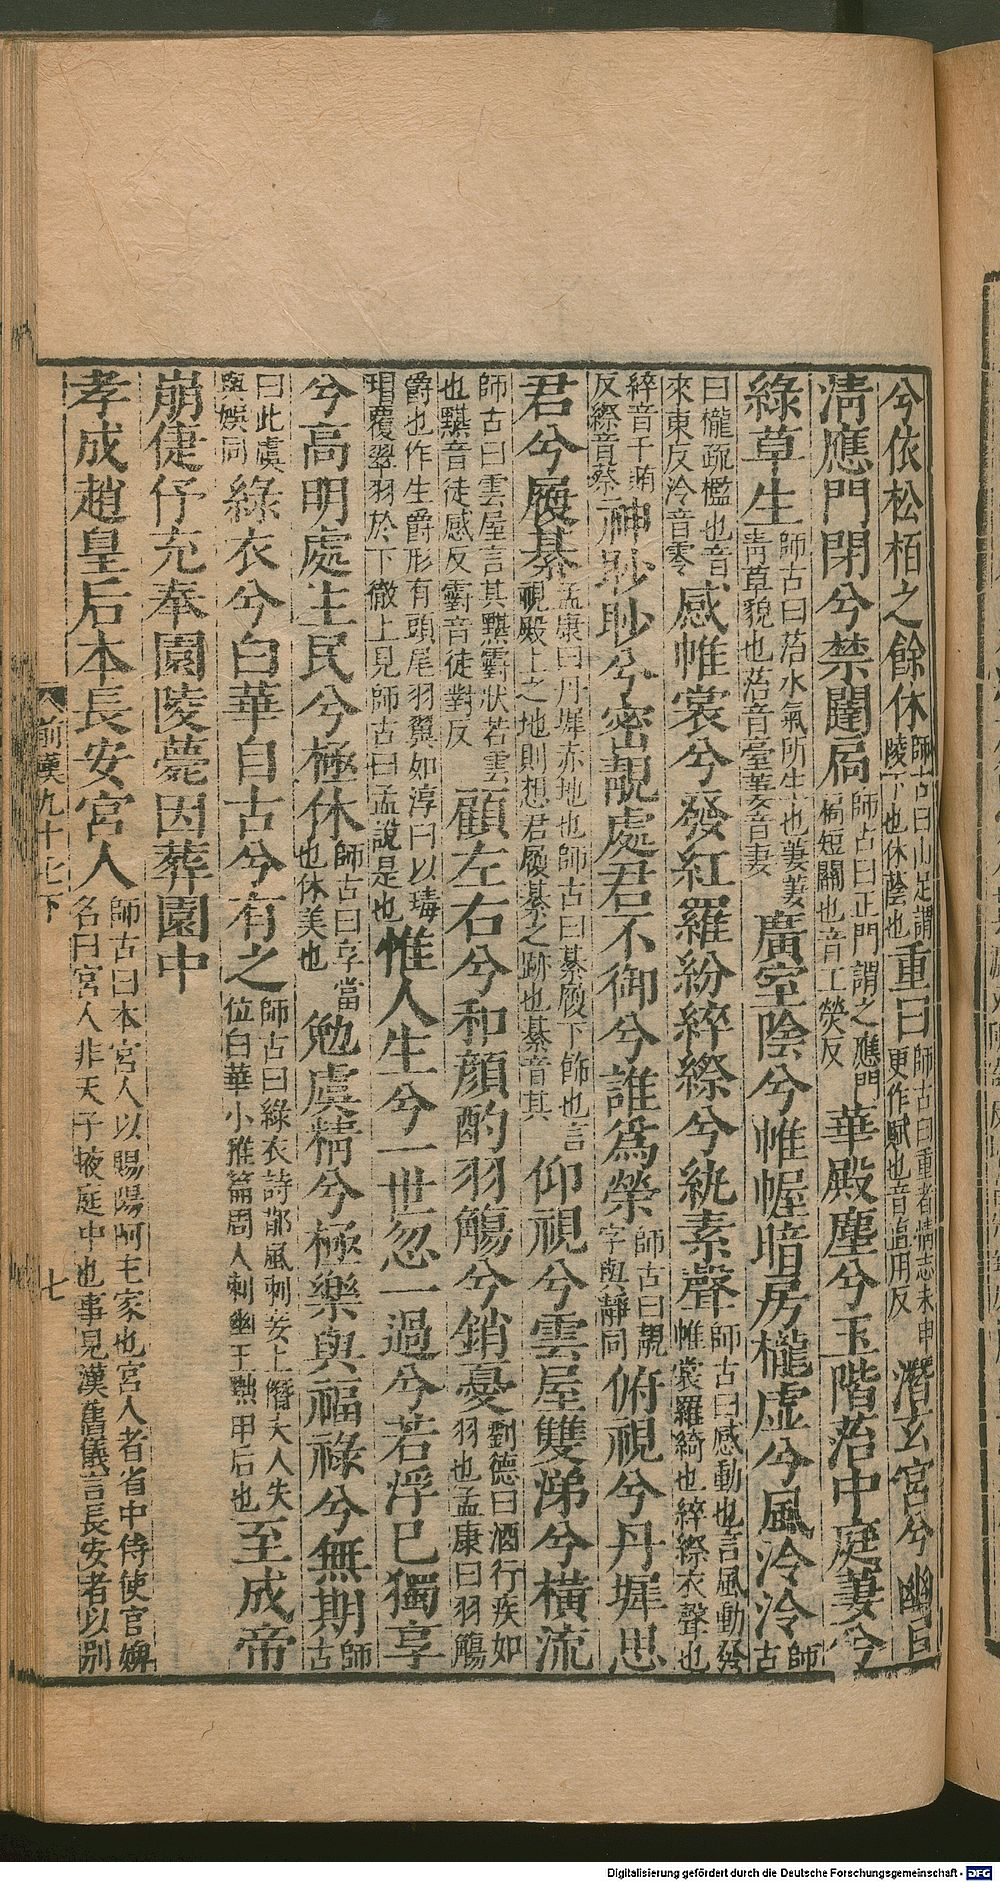 兮依松柏之餘休師古曰山足謂陵下也休蔭也重曰師古曰重者情志未申更作賦也音直用反潛玄宮兮幽㠯
清應門閉兮禁闥扃師古曰正門謂之應門扃短關也音工熒反華殿塵兮玉階菭中庭萋兮
綠草生師古曰菭水氣所生也萋萋青草貌也菭音臺萋音妻廣室陰兮帷幄暗房櫳虛兮風泠泠師古
曰櫳疏檻也音來東反泠音零感帷裳兮發紅羅紛綷縩兮紈素聲師古曰感動也言風動發帷裳羅綺也綷縩衣聲也
綷音千賄反縩音蔡神眇眇兮密靚處君不御兮誰爲榮師古曰靚字與靜同俯視兮丹墀思
君兮履綦孟康曰丹墀赤地也師古曰綦履下飾也言視殿上之地則想君履綦之跡也綦音其仰視兮雲屋雙涕兮橫流
師古曰雲屋言其黮䨴狀若雲也黮音徒感反䨴音徒對反顧左右兮和顏酌羽觴兮銷憂劉德曰酒行疾如羽也孟康曰羽觴
爵也作生爵形有頭尾羽翼如淳曰以瑇瑁覆翠羽於下徹上見師古曰孟說是也惟人生兮一世忽一過兮若浮已獨享
兮高明處生民兮極休師古曰享當也休美也勉虞精兮極樂與福祿兮無期師古
曰此虞與娛同綠衣兮白華自古兮有之師古曰綠衣詩邶風刺妾上僭夫人失位白華小雅篇周人刺幽王黜申后也至成帝
崩倢伃充奉園陵薨因葬園中
孝成趙皇后本長安宮人師古曰本宮人以賜陽阿主家也宮人者省中侍使官婢名曰宮人非天子掖庭中也事見漢舊儀言長安者以別
前漢九十七下
七
Digitalisierung gefördert durch die Deutsche Forschungsgemeinschaft - DFG